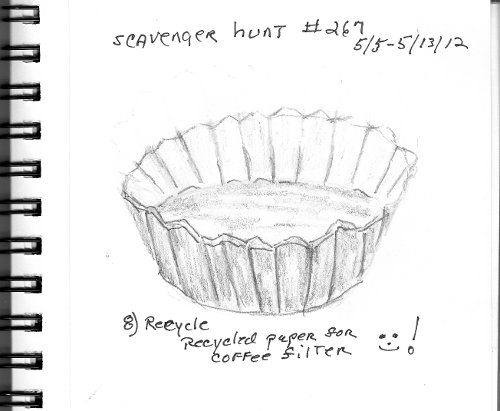 Scavenger Hunt #267
5/5-5/13/12
8) Recycle
Recycled paper for
Coffee Filter !